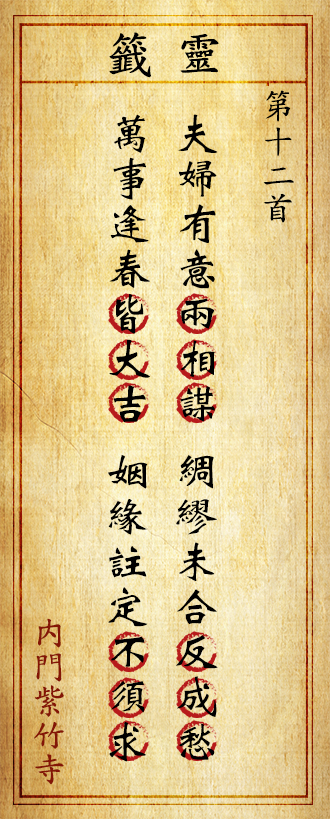 靈籤
第十二首
夫婦有意兩相謀
綢繆未合反成愁
萬事逢春皆大吉
姻緣註定不須求
内門紫竹寺